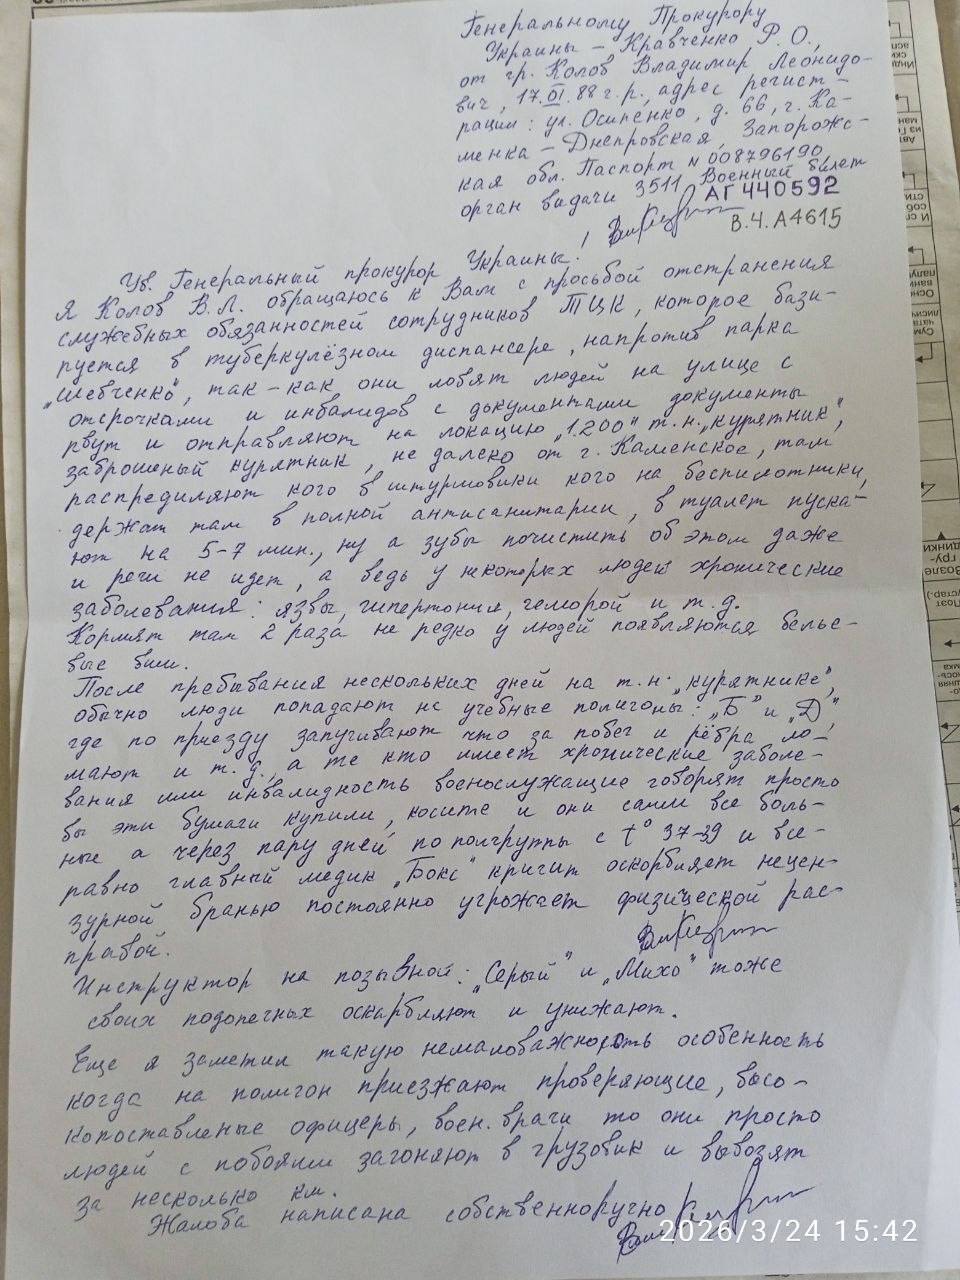 Генеральному Прокурору
Украины – Кравченко Р.О.,
от гр. Колов Владимир Леонидо-
вич, 17.VI.88 г.р., адрес регист-
рации: ул. Осипенко, д. 66, г. Ка-
менка – Днепровская, Запорожс-
кая обл. Паспорт № 008796190
орган видачи 3511 Военный билет
АГ 440592
В.Ч. А4615
Ув. Генеральный прокурор Украины!
Я Колов В.Л. обращаюсь к Вам с просьбой отстранения
служебных обязанностей сотрудников ТЦК, которое бази-
руется в туберкулёзном диспансере, напротив парка
„Шевченко", так-как они ловят людей на улице с
отсрочками и инвалидов с документами документы
рвут и отправляют на локацию „1.200" т.н. „курятник",
заброшеный курятник, не далеко от г. Каменское, там
распределяют кого в штурмовики кого на беспилотники,
держат там в полной антисанитарии, в туалет пуска-
ют на 5-7 мин., ну а зубы почистить об этом даже
и речи не идет, а ведь у некоторых людей хронические
заболевания: язвы, гипертония, геморой и т.д.
Кормят там 2 раза не редко у людей появляются бельё-
вые вши.
После пребывания нескольких дней на т.н. „курятнике",
обычно люди попадают на учебные полигоны: „Б" и „Д",
где по приезду запугивают что за побег и рёбра ло-
мают и т.д., а те кто имеет хронические заболе-
вания или инвалидность военослужащие говорят просто
вы эти бумаги купили, косите и они сами все боль-
ные а через пару дней по полгруппы с t° 37-39 и все-
равно главный медик „Бокс" кричит оскорбляет нецен-
зурной бранью постоянно угрожает физической рас-
правой.
Инструктор на позывной: „Серый" и „Михо" тоже
своих подопечных оскарбляют и унижают.
Еще я заметил такую немаловажность особенность
когда на полигон приезжают проверяющие, высо-
копоставленые офицеры, воен. врачи то они просто
людей с побоями загоняют в грузовик и вывозят
за несколько км.
Жалоба написана собственноручно
2026/3/24 15:42